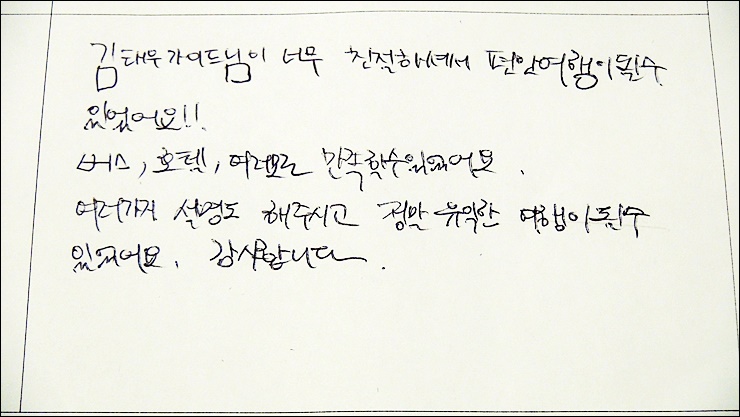 김태우가이드님이 너무 친절하셔서 편안여행이될수
있었어요!!
버스, 호텔, 여러모로 만족할수있었어요.
여러가지 설명도 해주시고 정말 유익한 여행이될수
있었어요. 감사합니다.